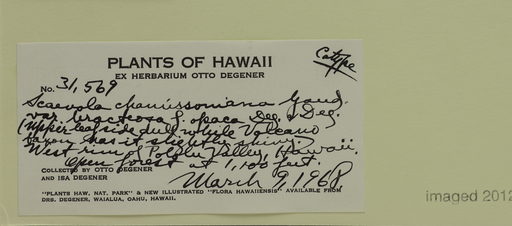 Cotype
PLANTS OF HAWAII
EX HERBARIUM OTTO DEGENER
No. 31,569
Scaevola chamissoniana Gaud.
var. bracteosa f. opaca Deg. & Deg.
(Upper leafside dull while Volcano
taxon has it slightly shiny.)
West rim of Pololu Valley, Hawaii.
Open forest at 1,100 feet.
COLLECTED BY OTTO DEGENER
AND ISA DEGENER
March 9, 1968
"PLANTS HAW. NAT. PARK" & NEW ILLUSTRATED "FLORA HAWAIIENSIS" AVAILABLE FROM
DRS. DEGENER, WAIALUA, OAHU, HAWAII.
imaged 2012